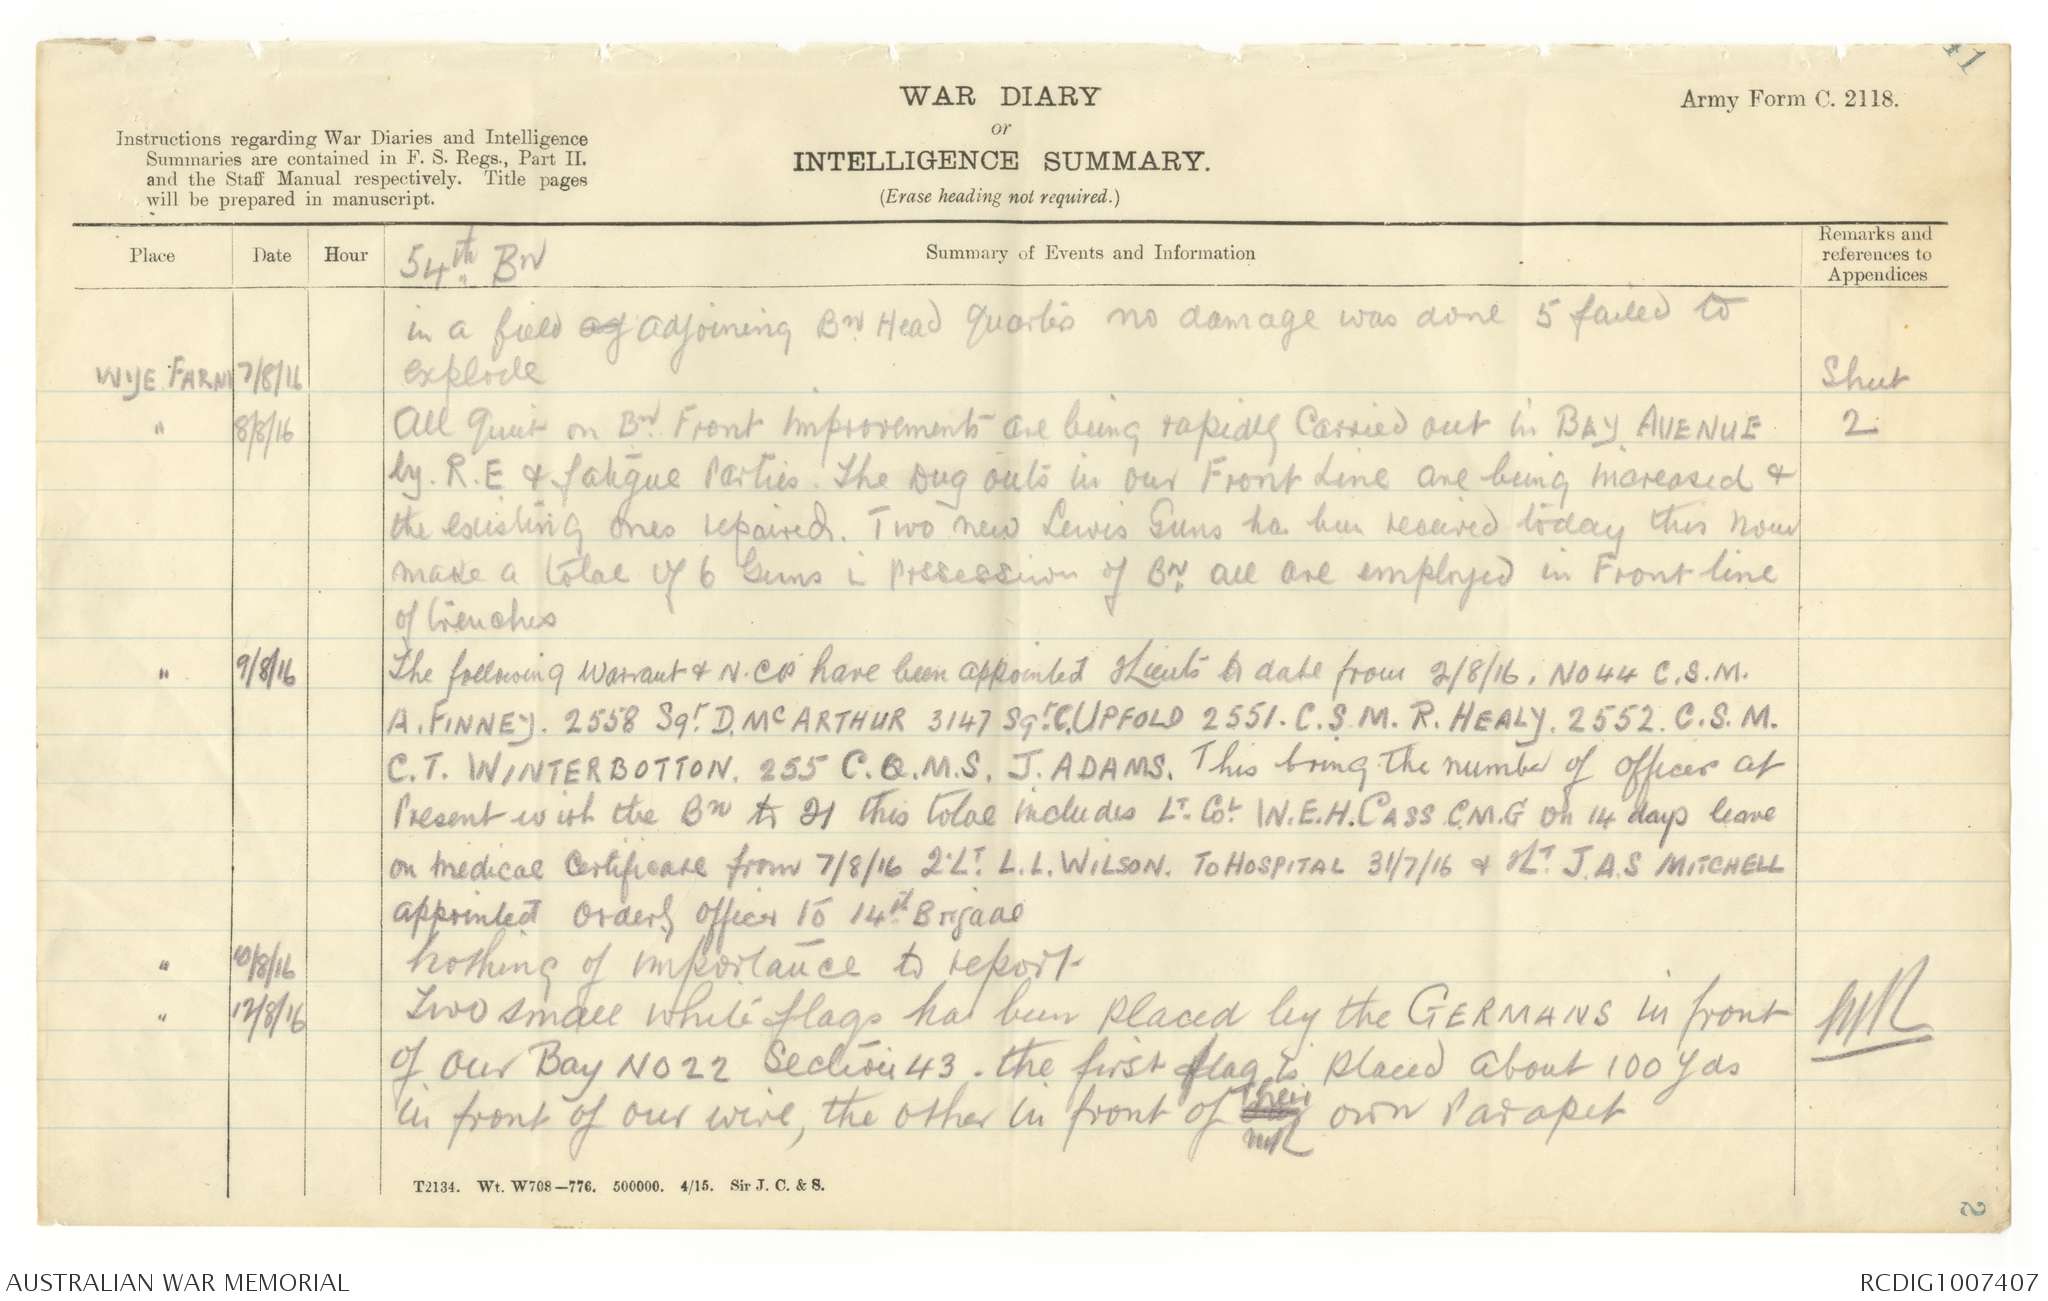 41
WAR DIARY
or
INTELLIGENCE SUMMARY.
(Erase heading not required.)
Army Form C. 2118.
Instructions regarding War Diaries and Intelligence
Summaries are contained in F. S. Regs., Part II.
and the Staff Manual respectively. Title pages
will be prepared in manuscript.
Place Date Hour 54th Bn Summary of Events and Information Remarks and references to Appendices
in a field adjoining Bn Head Quarters no damage was done 5 failed to
WYE FARM 7/8/16 explode Sheet
" 8/8/16 All quiet on Bn. Front improvements are being rapidly carried out in BAY AVENUE 2
by. R.E & fatigue Parties. The Dug outs in our Front Line are being increased &
the existing ones repaired. Two new Lewis Guns has been received today this now
make a total of 6 Guns i possession of Bn all are employed in Front line
of trenches
" 9/8/16 The following Warrant & N.COs have been appointed 2Lieuts to date from 2/8/16. NO44 C.S.M.
A. FINNEY. 2558 Sgt. D. McARTHUR 3147 Sgt. C. UPFOLD 2551. C.S.M. R. HEALY. 2552. C.S.M.
C.T. WINTERBOTTON. 255 C.Q.M.S. J. ADAMS. This bring the number of officer at
Present with the Bn to 21 this total includes Lt. Col. W.E.H. CASS C.M.G on 14 days leave
on medical Certificate from 7/8/16 2Lt. L.L. WILSON. TO HOSPITAL 31/7/16 & 2Lt. J.A.S MITCHELL
appointed orderly officer to 14th Brigade
" 10/8/16 Nothing of importance to report
" 12/8/16 Two small white flags has been placed by the GERMANS in front
of our Bay NO22 Section 43. the first flag is placed about 100 Yds
in front of our wire, the other in front of their own Parapet
T2134. Wt. W708—776. 500000. 4/15. Sir J. C. & S.
2
AUSTRALIAN WAR MEMORIAL
RCDIG1007407